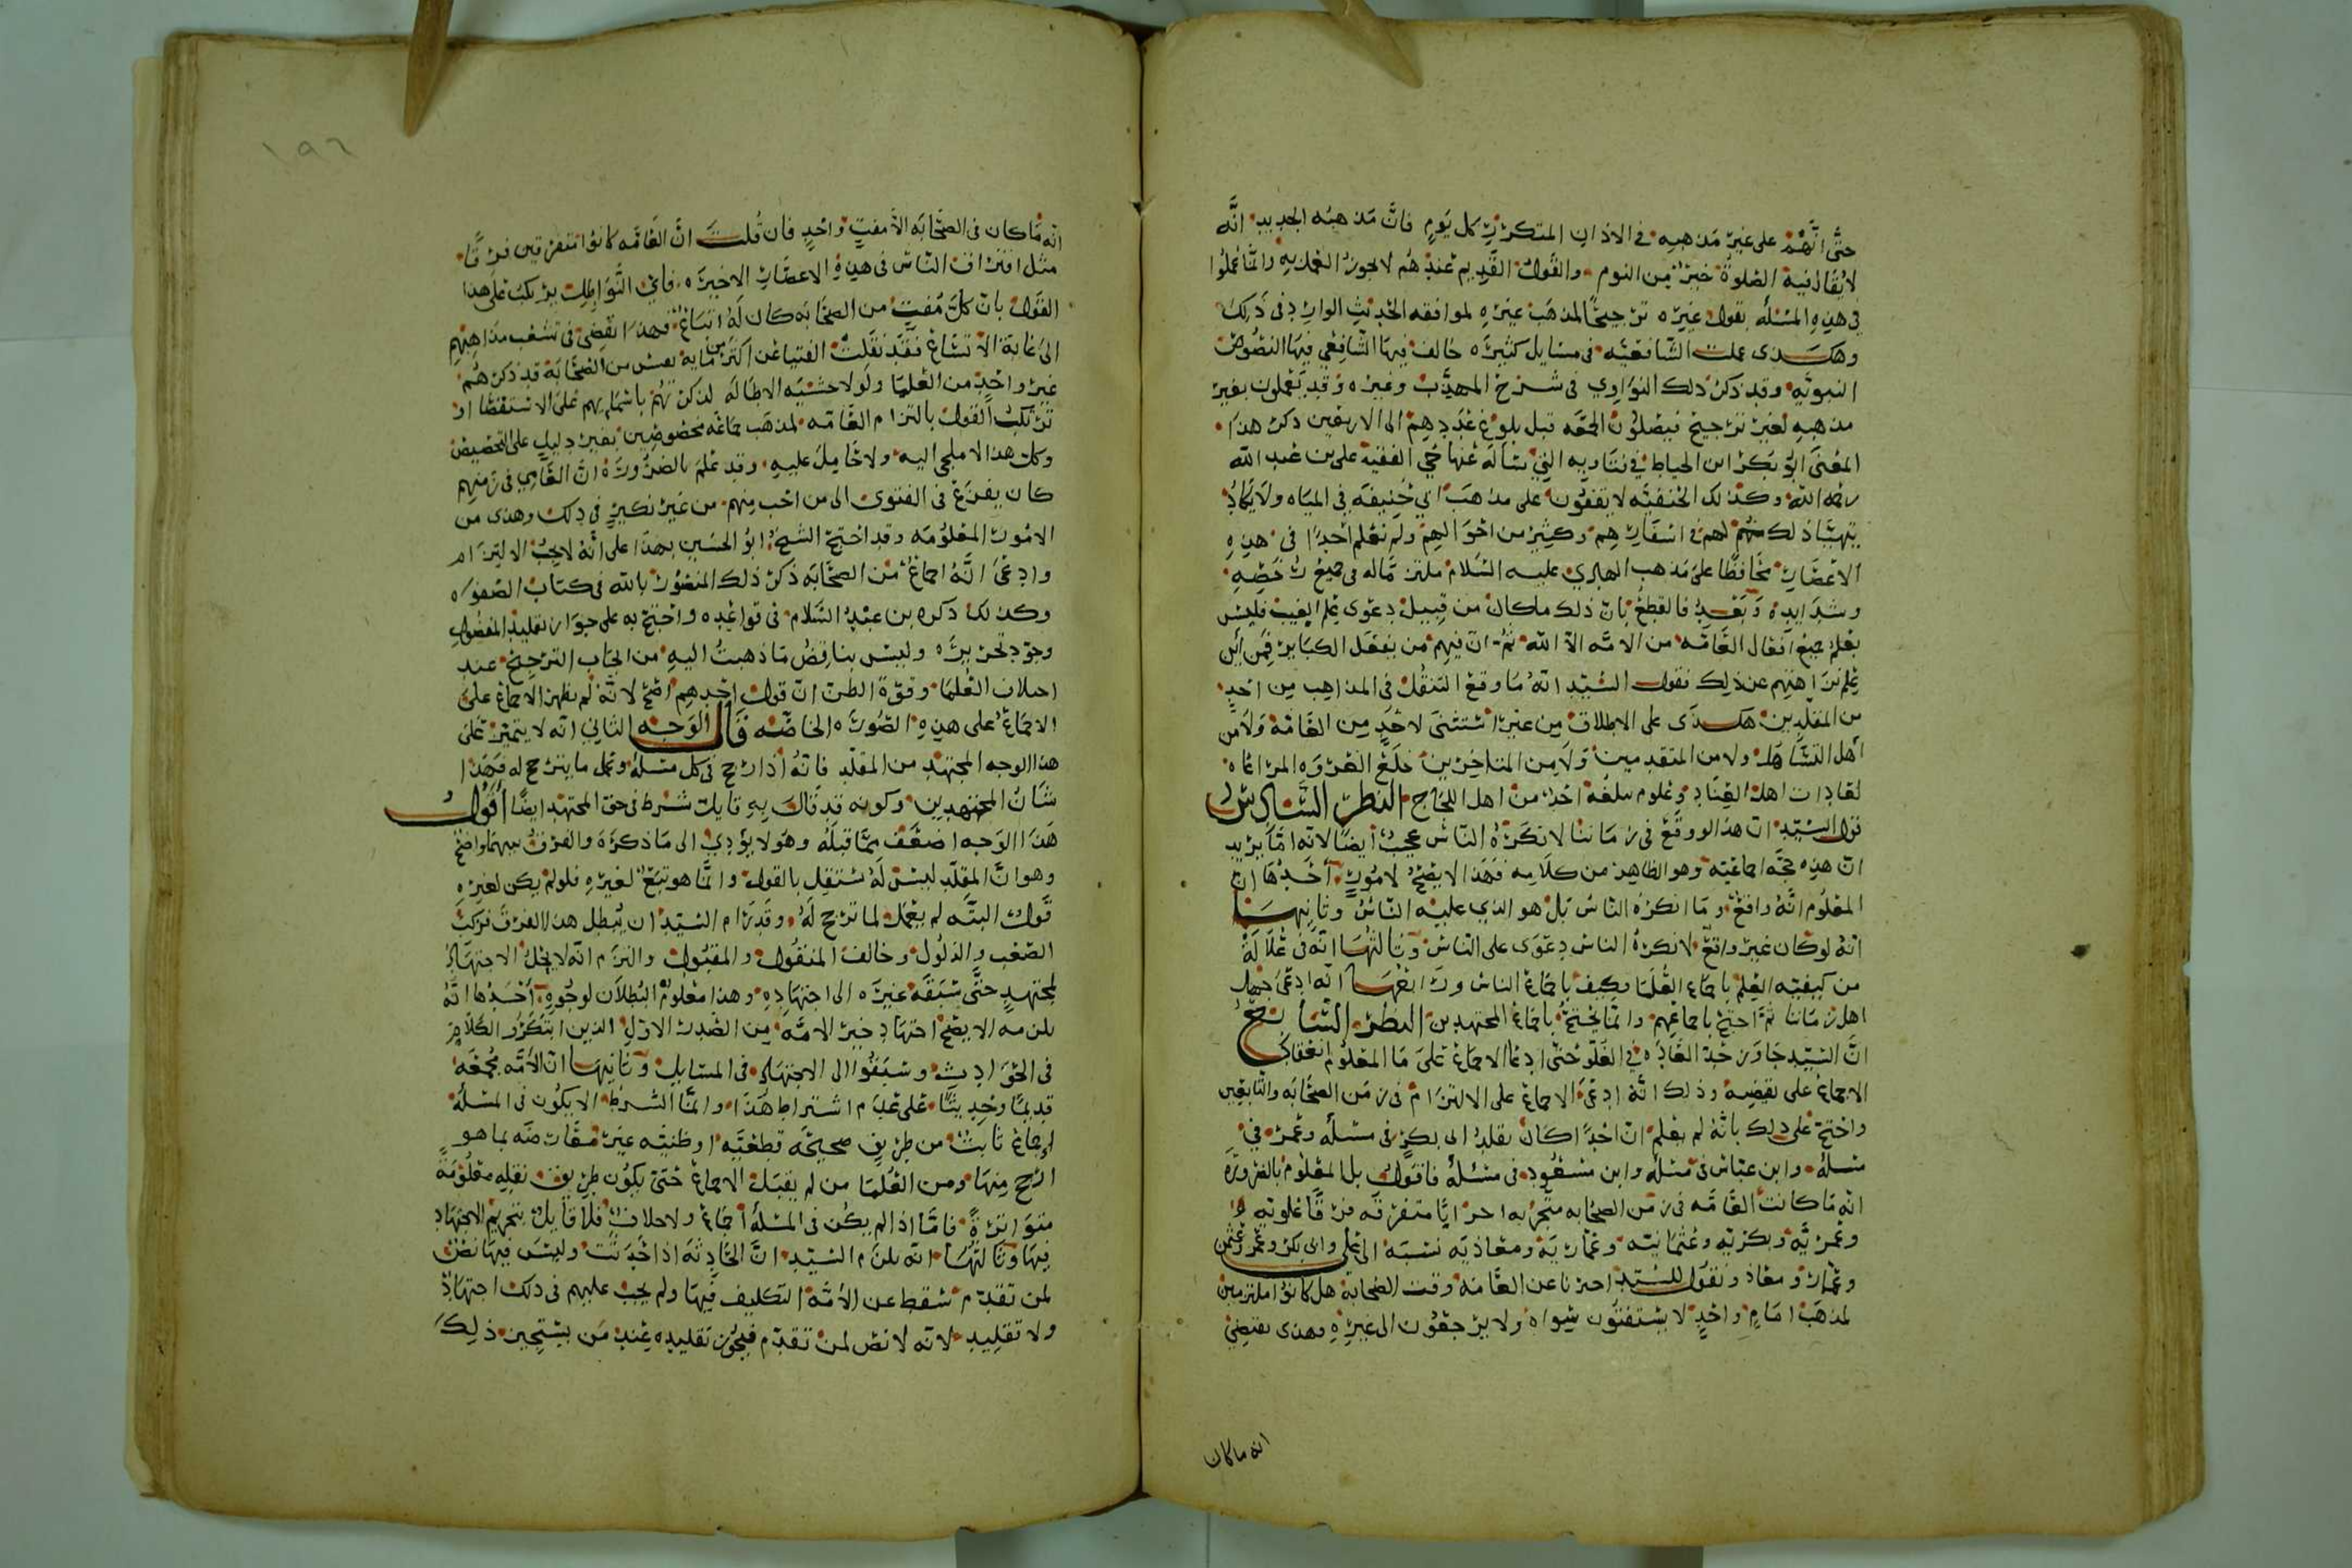 حتى انهم على غير مذهبه في الاذان المتكرر كل يوم فان مذهبه الجديد انه
لا يقال فيه الصلوة خير من النوم والقول القديم عندهم لا يجوز العمل به وانما عملوا
في هذه المسئلة بقول غيره ترجيحًا لمذهب غيره لموافقه الحديث الوارد في ذلك
وهكذى عملت الشافعيه في مسايل كثيره خالف فيها الشافعي فيها النصوص
النبويه وقد ذكر ذلك النواوي في شرح المهذب وغيره وقد يعملون بغير
مذهبه لغير ترجيح فيصلون الجمعه قبل بلوغ عددهم الى الاربعين ذكر هذا
المعنى ابو بكر ابن الخياط في فتاويه التي ساله عنها حي الفقيه علي بن عبد الله
رحمه الله وكذلك الحنفيه لا يقفون على مذهب ابي حنيفه في المياه ولا يكاد
يتهيا ذلك منهم لهم في اسفارهم وكثير من احوالهم ولم نعلم احدًا في هذه
الاعصار محافظًا على مذهب الهادي عليه السلام ملتزمًا له في جميع رخصه
وشدايده وبعد فالقطع بان ذلك ما كان من قبيل دعوى علم الغيب فليس
يعلم جميع افعال العامه من الامه الا الله ثم ان فيهم من يفعل الكباير فمن أين
علم نزاهتهم عن ذلك فقول السيد انه ما وقع التنقل في المذاهب من احد
من المقلدين هكذى على الاطلاق من غير استثنى لاحد من العامة ولا من
أهل التساهل ولا من المتقدمين ولا من المتاخرين خلع الضروه المراعاه
لعادات اهل العناد وعلوم سلفه احد من اهل اللجاج النظر السادس
قول السيد ان هذا لو وقع في زماننا لانكره الناس عجيب أيضًا لانه اما يريد
ان هذه حجه اجماعيه وهو الظاهر من كلامه فهذا لا يصح لامور أحدها ان
المعلوم انه واقع وما انكره الناس بل هو الذي عليه الناس وثانيها
انه لو كان غير واقع لانكره الناس دعوى على الناس وثالثها انه في غلاله
من كيفيه العلم باجماع العلما وكيف باجماع الناس ورابعها انه ادعى جهل
اهل زماننا ثم احتج باجماعهم وانما يحتج باجماع المجتهدين النظر السابع
ان السيد جاوز حد العاده في الغلو حتى ادعا الاجماع على ما المعلوم انعقاد
الاجماع على نقيضه وذلك انه ادعى الاجماع على الالتزام في زمن الصحابه والتابعين
واحتج على ذلك بانه لم يعلم ان احدًا كان يقلد ابى بكر في مسئله وعمر في
مسئلة وابن عباس في مسئلة وابن مسعود في مسئلة فاقول بل المعلوم بالضروره
انه ما كانت العامه في زمن الصحابه متحزبه احزابًا متفرقه فرقًا علويه
وعمريه وبكريه وعثمانيه وعماريه ومعاذيه نسبه الى علي وابى بكر وعمر وعثمن
وعمار ومعاذ ونقول للسيد اخبرنا عن العامه وقت الصحابه هل كانوا ملتزمين
لمذهب امام واحد لا يستفتون سواه ولا يرجعون الى غيره وهذى يقتضي
انه ما كان
١٩٦
انه ما كان في الصحابه الا مفت واحد فان قلت ان العامه كانوا متفرقين فرقًا
مثل افتراق الناس في هذه الاعصار الاخيره فاي التواطلت يركب على هذا
القول بان كل مفت من الصحابه كان له اتباع فهذا يقضي في تشعب مذاهبهم
الى غاية الاتساع فقد نقلت الفتيا عن اكثر من مايه نفس من الصحابه قد ذكرهم
غير واحد من العلما ولولا خشيه الاطاله لذكرتهم باسمايهم على الاستقصا او
ترتكب القول بالتزام العامه لمذهب جماعه مخصوصين بغير دليل على التخصيص
وكل هذا لا ملجي اليه ولا حامل عليه وقد علم بالضروره ان العامي في زمنهم
كان يفزع في الفتوى الى من احب منهم من غير نكير في ذلك وهذى من
الامور المعلومه وقد احتج الشيخ ابو الحسين بهذا على انه لا يجب الالتزام
وادعى انه اجماع من الصحابه ذكر ذلك المنصور بالله في كتاب الصفوه
وكذلك ذكره بن عبد السلام في قواعده واحتج به على جواز تقليد المفضول
وجود تحريره وليس يناقض ما ذهبت اليه من ايجاب الترجيح عند
اختلاف العلما وقوة الظن ان قول احدهم اصح لانه لم يظهر الاجماع على
الاجماع على هذه الصوره الخاصه قال الوجه الثاني انه لا يتميز على
هذا الوجه المجتهد من المقلد فانه اذا رجح في كل مسئلة وعمل ما يترجح له فهذا
شان المجتهدين وكونه قد قال به قايل شرط في حق المجتهد ايضًا أقول
هذا الوجه اضعف مما قبله وهو لا يؤدي الى ما ذكره والفرق بينهما واضح
وهو ان المقلد ليس له مستقل بالقول وانما هو تبع لغيره فلو لم يكن لغيره
قول البته لم يعمل لما ترجح له وقد رام السيد ان يبطل هذا الفرق فركب
الصعب والذلول وخالف المنقول والمعقول والتزم انه لا يحل الاجتهاد
لمجتهد حتى سبقه غيره الى اجتهاده وهذا معلوم البطلان لوجوه أحدها انه
يلزمه الا يصح اجتهاد خير الامه من الصدر الاول الذين ابتكروا الكلام
في الحوادث وسبقوا الى الاجتهاد في المسايل وثانيها ان الأمه مجمعه
قديمًا وحديثًا على عدم اشتراط هذا وانما الشرط الا يكون في المسئله
اجماع ثابت من طريق صحيحه قطعيه او ظنيه غير معارضه بما هو
ارجح منها ومن العلما من لم يقبل الاجماع حتى يكون طريق نقله معلومة
متواترة فاما اذا لم يكن في المسئلة أجماع ولا خلاف فلا قايل بتحريم الاجتهاد
فيها وثالثها انه يلزم السيد ان الحادثه اذا حدثت وليس فيها نص
لمن تقدم سقط عن الأمه التكليف فيها ولم يجب عليهم في ذلك اجتهاد
ولا تقليد لانه لا نص لمن تقدم فيجوز تقليده عند من يستجيز ذلك